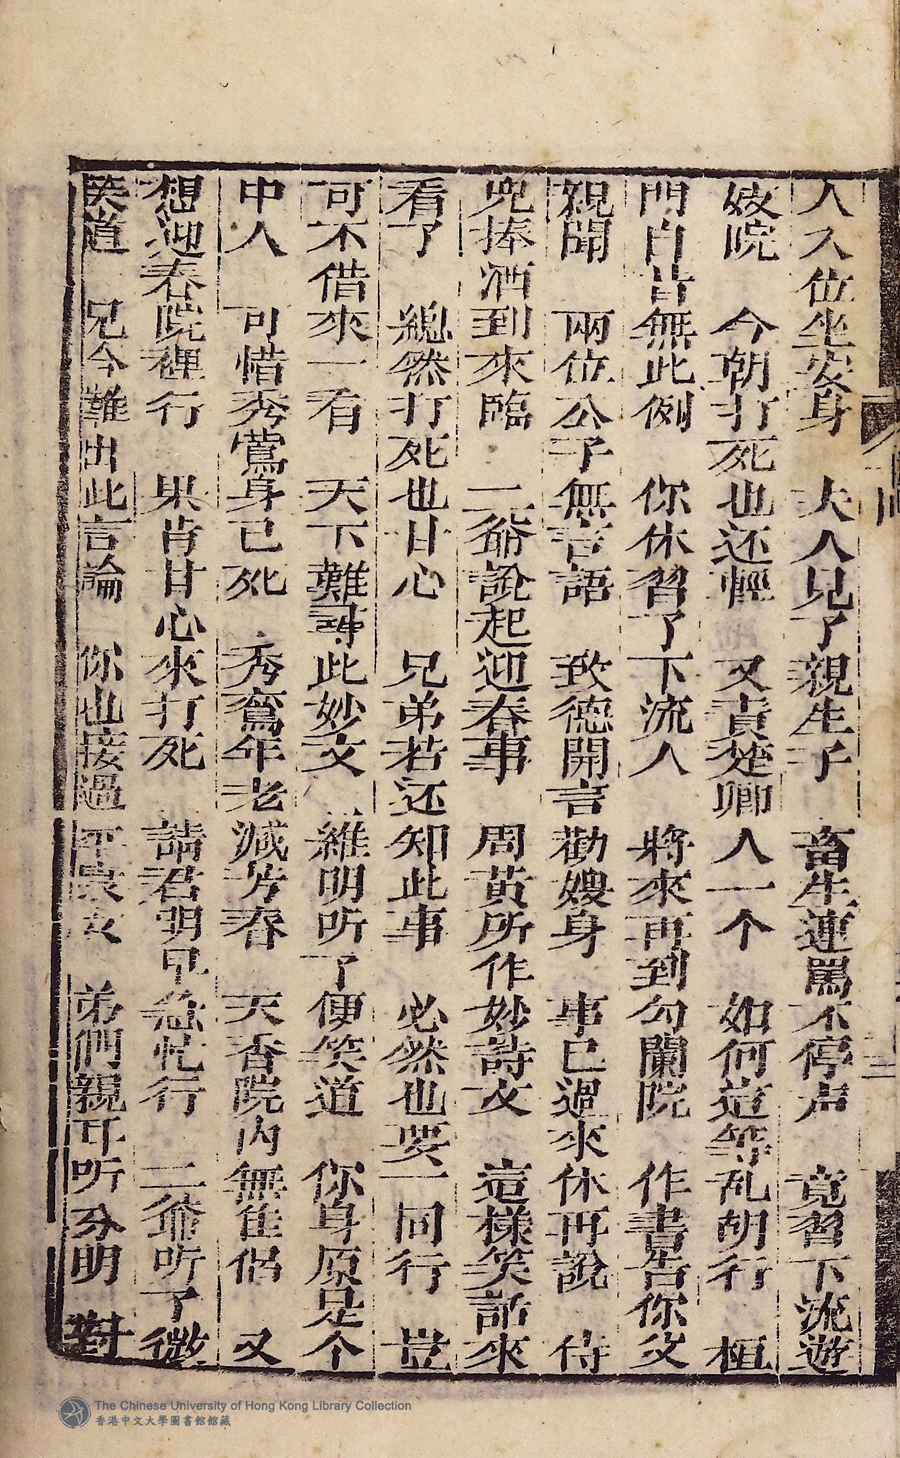 人入位坐安身　夫人見了親生子　畜生連罵不停声　竟習下流遊
妓院　今朝打死也还輕　又責楚卿人一个　如何這等乱胡行　桓
門自昔無此例　你休習了下流人　將來再到勾闌院　作書告你父
親聞　兩位公子無言語　致德開言勸嫂身　事已過來休再說　侍
兒捧酒到來臨　二爺說起迎春事　周黃所作妙詩文　這樣笑話來
看了　總然打死也甘心　兄弟若还知此事　必然也要一同行　豈
可不借來一看　天下難尋此妙文　維明听了便笑道　你身原是个
中人　可惜秀鶯身已死　秀鸞年老減芳春　天香院内無佳侶　又
想迎春院裡行　果肯甘心來打死　請君明早急忙行　二爺听了微
笑道　兄今難出此言論　你也接過　弟們親耳听分明　對
The Chinese University of Hong Kong Library Collection
香港中文大學圖書館館藏